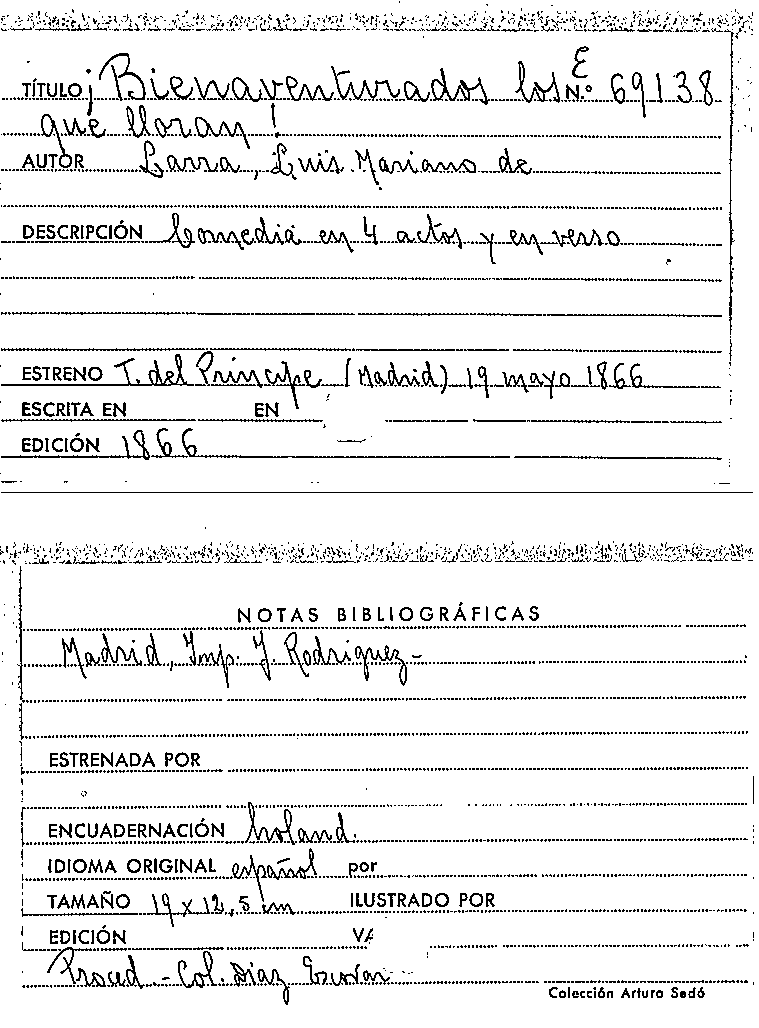 TÍTULO ¡Bienaventurados los E N.º 69138
que lloran!
AUTOR Larra, Luis Mariano de
DESCRIPCIÓN Comedia en 4 actos y en verso
ESTRENO T. del Príncipe (Madrid) 19 mayo 1866
ESCRITA EN EN
EDICIÓN 1866
NOTAS BIBLIOGRÁFICAS
Madrid, Imp. J. Rodriguez-
ESTRENADA POR
ENCUADERNACIÓN holand.
IDIOMA ORIGINAL español por
TAMAÑO 19 x 12,5 cm ILUSTRADO POR
EDICIÓN
Proced.- Col. Díaz Escovar
Colección Arturo Sedó